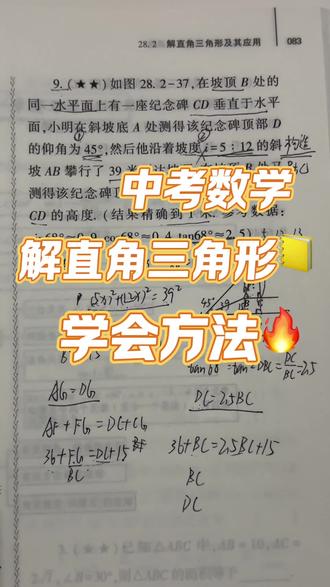 28.2 解直角三角形及其应用 083
9.(★★)如图 28.2-37,在坡顶 B 处的
同一水平面上有一座纪念碑 CD 垂直于水平
面,小明在斜坡底 A 处测得该纪念碑顶部 D
的仰角为 45°,然后他沿着坡度 i=5:12 的斜
坡 AB 攀行了 39 米
测得该纪念碑
CD 的高度.(结果精确到 1 米.参考数据:
68°≈0.9 68°≈0.4 tan68°≈2.5)
中考数学
解直角三角形
学会方法
(5x)²+(12x)²=39²
45°
tan68°=tan∠DBC=DC/BC=2.5
AG=DG
DC=2.5BC
AF+FG=DC+CG
36+FG=DC+15
BC
36+BC=2.5BC+15
BC
DC
3.(★★)已知△ABC 中,AB=10,AC=
2√7,∠B=30°,则△ABC 的面积等于